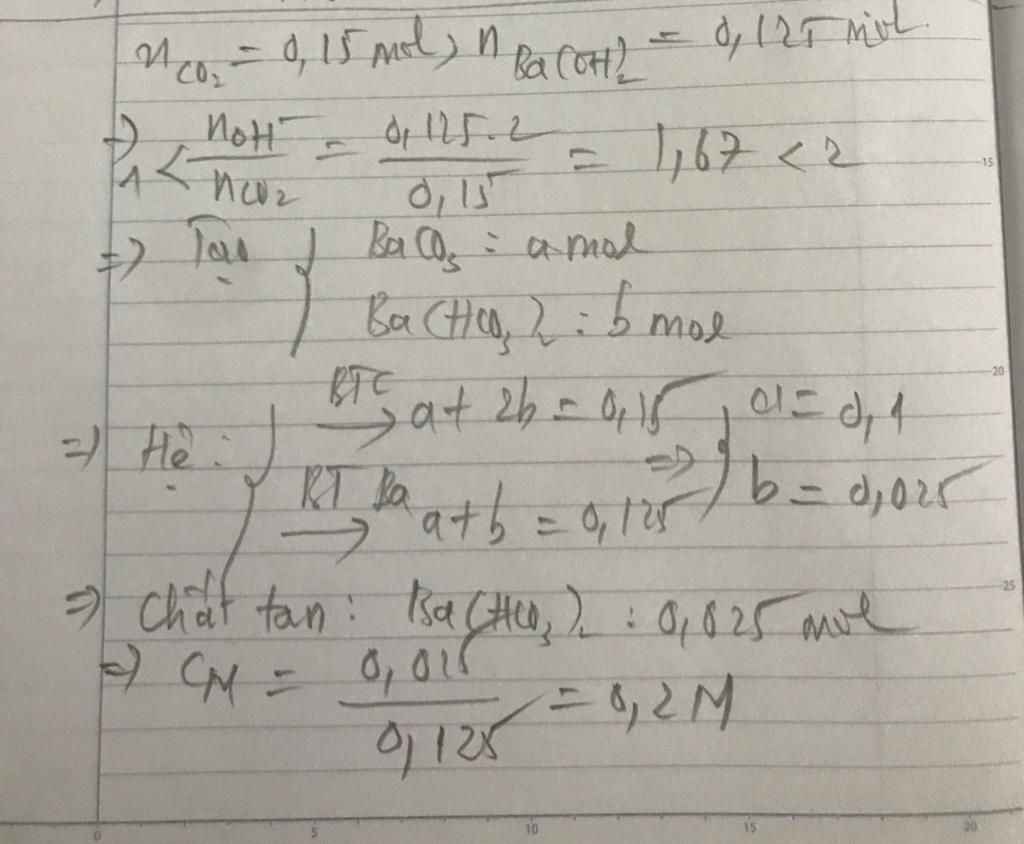 n CO₂ = 0,15 mol, n Ba(OH)₂ = 0,125 mol.
=> 1 < nOH⁻ / nCO₂ = 0,125.2 / 0,15 = 1,67 < 2
=> Tạo } BaCO₃ : a mol
Ba(HCO₃)₂ : b mol
=> Hệ : } BTC → a + 2b = 0,15 => } a = 0,1
BT Ba → a + b = 0,125 b = 0,025
=> Chất tan : Ba(HCO₃)₂ : 0,025 mol
=> CM = 0,025 / 0,125 = 0,2 M
15
20
25
0 5 10 15 20